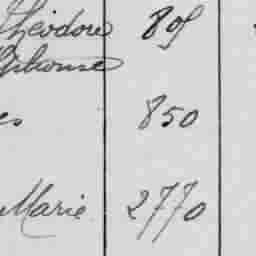 Théodore 805
Alphonse
es 850
Marie 2770